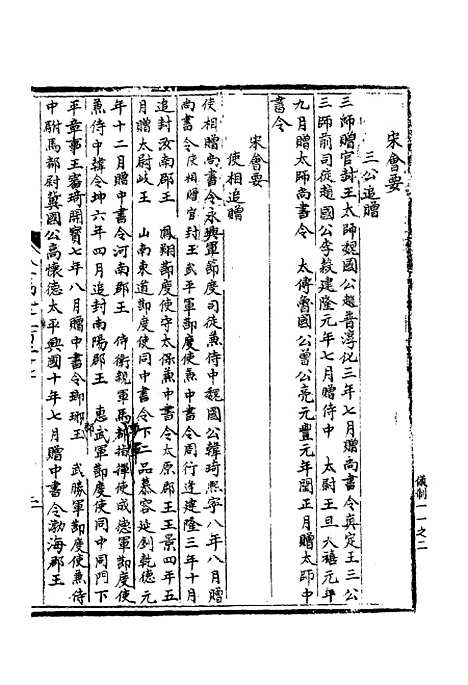 宋會要
三公追贈
三師贈官封王太師魏國公趙普淳化三年七月贈尚書令真定王三公
三師前司徒趙國公李穀建隆元年七月贈侍中　太尉王旦天禧元年
九月贈太師尚書令　太傅魯國公曾公亮元豐元年閏正月贈太師中
書令
宋會要
使相追贈
使相贈尚書令永興軍節度司徒兼侍中魏國公韓琦熙寧八年八月贈
尚書令使相贈官封王武平軍節度使兼中書令周行逢建隆三年十月
追封汝南郡王　鳳翔節度使守太保兼中書令太原郡王王景四年五
月贈太尉岐王　山南東道節度使同中書令下二品慕容延釗乾德元
年十二月贈中書令河南郡王　侍衛親軍馬都指揮使成德軍節度使
兼侍中韓令坤六年四月追封南陽郡王　忠武軍節度使同中同門下
平章事王審琦開寶七年八月贈中書令瑯琊王　武勝軍節度使兼侍
中駙馬都尉冀國公高懷德太平興國十年七月贈中書令渤海郡王
儀制一一之二